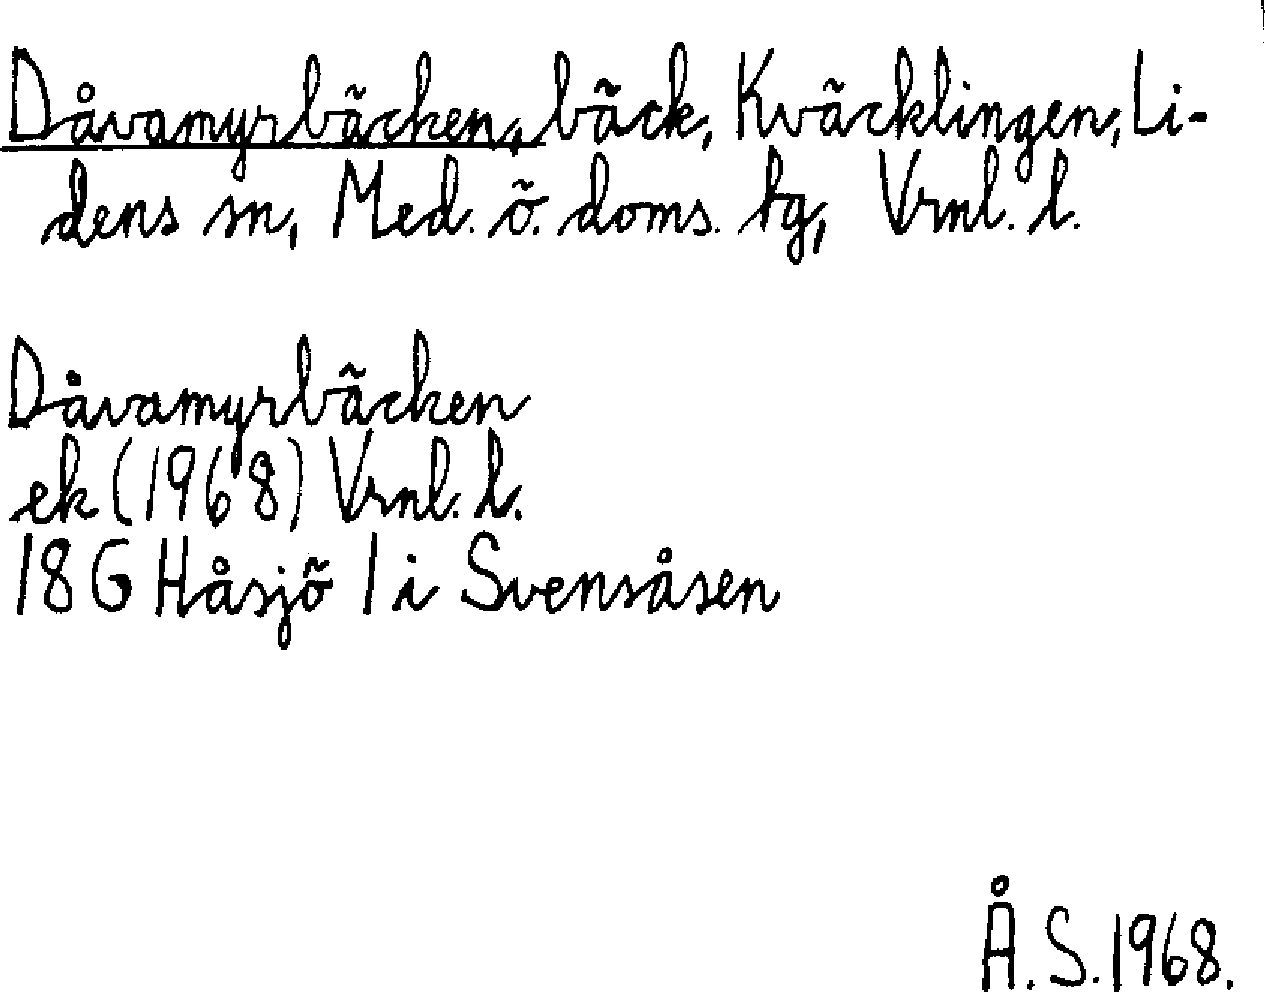 Dåvamyrbäcken, bäck, Kväcklingen, Li-
dens sn, Med. ö. doms. tg, Vrnl. l.
Dåvamyrbäcken
ek (1968) Vrnl. l.
18G Håsjö 1 i Svensåsen
Å. S. 1968.